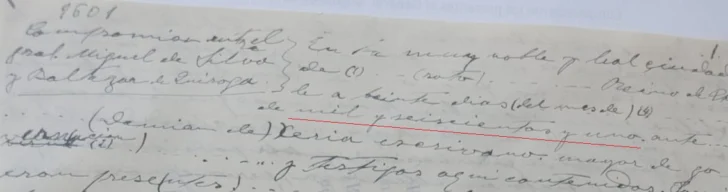 1601
Compromiso entre el
gral. Miguel de Silva
y Baltazar de Quiroga
1.
En la muy noble y leal ciudad
de (1) .. (roto) ...... Reino de
a beinte dias (del mes de) (4)
de mil y seiscientos y uno, ante
..... (Damian de) Xeria escrivano mayor de go
(2)) ..... y testigos aqui contenidos
eron presentes)